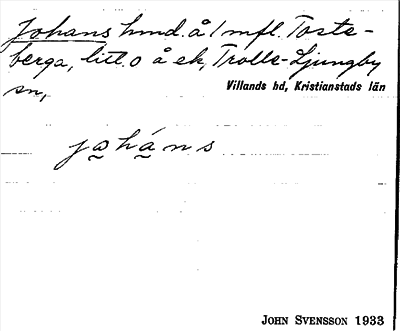 Johans hmd. å 1 mfl. Toste-
berga, litt. o å ek, Trolle-Ljungby
sn, Villands hd, Kristianstads län
johá̱ns
JOHN SVENSSON 1933